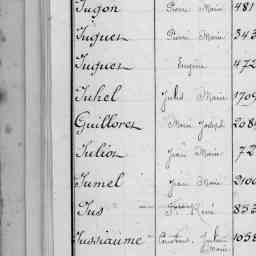 Jugon Pierre Marie 481
Juguet Pierre Marie 343
Juguet Eugène 472
Juhel Jules Marie 1709
Guilloret Marie Joseph 208
Julion Jean Marie 72
Jumel Jean Marie 2100
Jus René 853
Jussiaume Julien Marie 1058